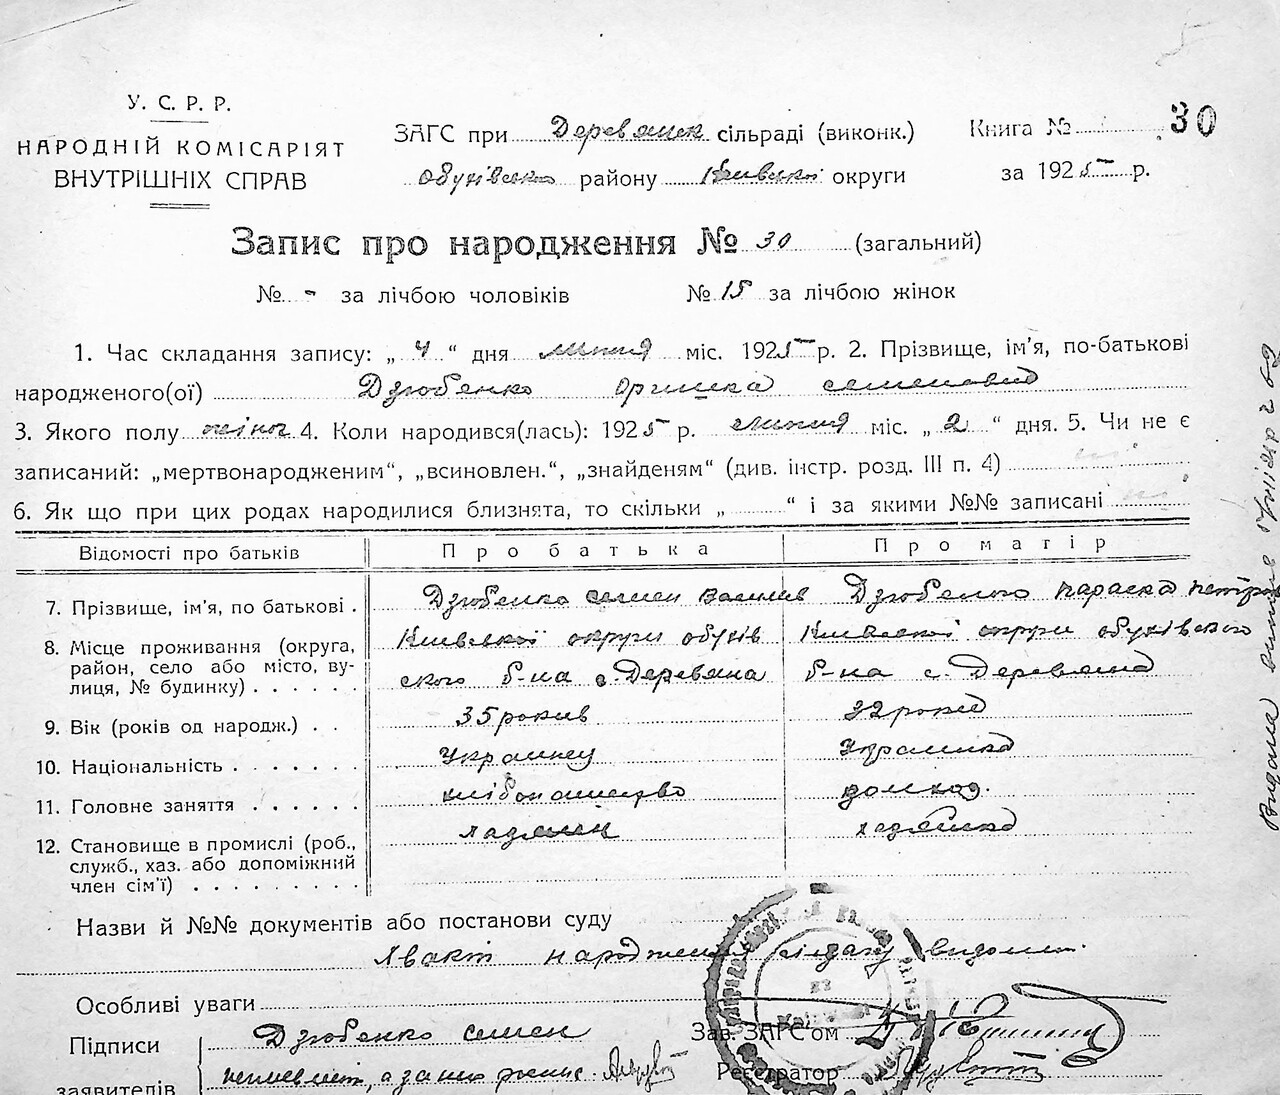 У. С. Р. Р.
НАРОДНІЙ КОМІСАРІЯТ
ВНУТРІШНІХ СПРАВ
ЗАГС при Деревянск сільраді (виконк.)
Обухівськ району Київської округи
Книга №
30
за 1925 р.
Запис про народження № 30 (загальний)
№ - за лічбою чоловіків № 15 за лічбою жінок
1. Час складання запису: „ 4 “ дня липня міс. 1925 р. 2. Прізвище, ім’я, по-батькові
народженого(ої) Дзюбенко Оришка Семеновна
3. Якого полу жіноч 4. Коли народився(лась): 1925 р. липня міс. „ 2 “ дня. 5. Чи не є
записаний: „мертвонародженим“, „всиновлен.“, „знайденям“ (див. інстр. розд. III п. 4) ні
6. Як що при цих родах народилися близнята, то скільки „ “ і за якими №№ записані ні
Відомості про батьків Про батька Про матір
7. Прізвище, ім’я, по батькові . Дзюбенко Семен Васильев Дзюбенко Параска Петров
8. Місце проживання (округа, район, село або місто, вулиця, № будинку) . . . . . . Київської округи Обухівського р-на с. Деревяна Київської округи Обухівского р-на с. Деревяна
9. Вік (років од народж.) . . 35 років 32 років
10. Національність . . . . . . . Украинец Украинка
11. Головне заняття . . . . . . хлібопашество домход.
12. Становище в промислі (роб., служб., хаз. або допоміжний член сім’ї) . . . . . . . . . хазяїн хазяйка
Назви й №№ документів або постанови суду
народження видом
Особливі уваги
Підписи
заявителів
Дзюбенко Семен
неписьмен, а за него
Зав. ЗАГС’ом
Реєстратор
Видана витяг